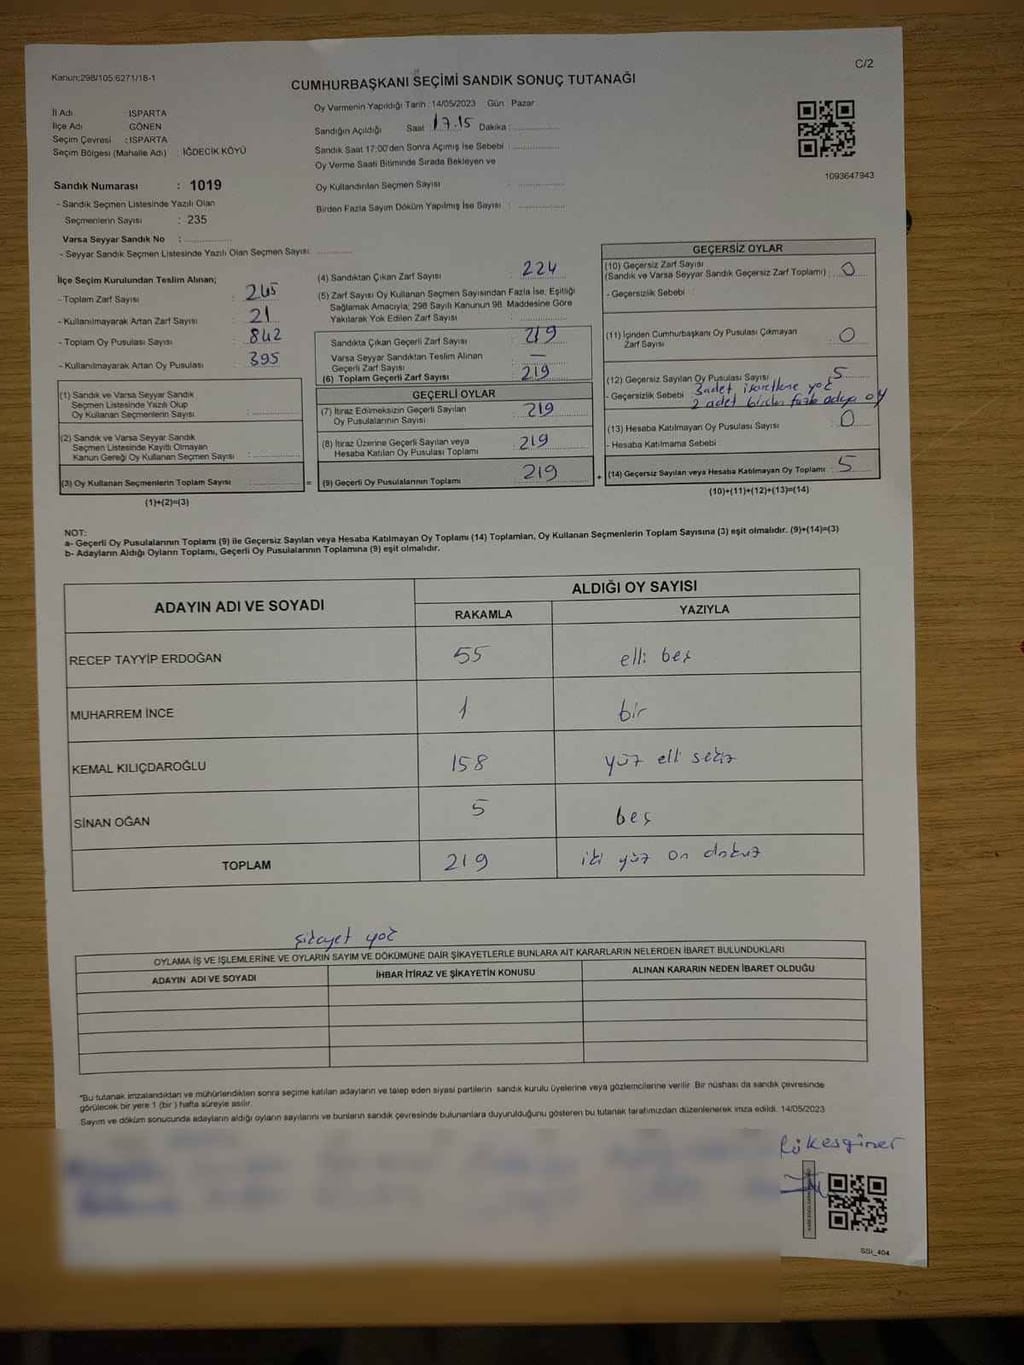 Kanun:298/105 6271/18-1
C/2
CUMHURBAŞKANI SEÇİMİ SANDIK SONUÇ TUTANAĞI
İl Adı ISPARTA
İlçe Adı GÖNEN
Seçim Çevresi : ISPARTA
Seçim Bölgesi (Mahalle Adı) : İĞDECİK KÖYÜ
Oy Vermenin Yapıldığı Tarih : 14/05/2023 Gün : Pazar
Sandığın Açıldığı Saat : 17.15 Dakika :
Sandık Saat 17:00'den Sonra Açımış İse Sebebi :
Oy Verme Saati Bitiminde Sırada Bekleyen ve
Oy Kullandırılan Seçmen Sayısı :
Birden Fazla Sayım Döküm Yapılmış İse Sayısı :
1093647943
Sandık Numarası : 1019
- Sandık Seçmen Listesinde Yazılı Olan
Seçmenlerin Sayısı : 235
Varsa Seyyar Sandık No :
- Seyyar Sandık Seçmen Listesinde Yazılı Olan Seçmen Sayısı:
İlçe Seçim Kurulundan Teslim Alınan;
- Toplam Zarf Sayısı : 245
- Kullanılmayarak Artan Zarf Sayısı : 21
- Toplam Oy Pusulası Sayısı : 842
- Kullanılmayarak Artan Oy Pusulası : 395
(1) Sandık ve Varsa Seyyar Sandık
Seçmen Listesinde Yazılı Olup
Oy Kullanan Seçmenlerin Sayısı :
(2) Sandık ve Varsa Seyyar Sandık
Seçmen Listesinde Kayıtlı Olmayan
Kanun Gereği Oy Kullanan Seçmen Sayısı :
(3) Oy Kullanan Seçmenlerin Toplam Sayısı :
(1)+(2)=(3)
(4) Sandıktan Çıkan Zarf Sayısı : 224
(5) Zarf Sayısı Oy Kullanan Seçmen Sayısından Fazla İse, Eşitliği
Sağlamak Amacıyla; 298 Sayılı Kanunun 98. Maddesine Göre
Yakılarak Yok Edilen Zarf Sayısı :
Sandıkta Çıkan Geçerli Zarf Sayısı : 219
Varsa Seyyar Sandıktan Teslim Alınan
Geçerli Zarf Sayısı : —
(6) Toplam Geçerli Zarf Sayısı : 219
GEÇERLİ OYLAR
(7) İtiraz Edilmeksizin Geçerli Sayılan
Oy Pusulasının Sayısı : 219
(8) İtiraz Üzerine Geçerli Sayılan veya
Hesaba Katılan Oy Pusulası Toplamı : 219
= (9) Geçerli Oy Pusulalarının Toplamı : 219 +
GEÇERSİZ OYLAR
(10) Geçersiz Zarf Sayısı
(Sandık ve Varsa Seyyar Sandık Geçersiz Zarf Toplamı) : 0
- Geçersizlik Sebebi :
(11) İçinden Cumhurbaşkanı Oy Pusulası Çıkmayan
Zarf Sayısı : 0
(12) Geçersiz Sayılan Oy Pusulası Sayısı : 5
- Geçersizlik Sebebi 3 adet işaretleme yok
2 adet birden fazla adaya oy
(13) Hesaba Katılmayan Oy Pusulası Sayısı : 0
- Hesaba Katılmama Sebebi
(14) Geçersiz Sayılan veya Hesaba Katılmayan Oy Toplamı : 5
(10)+(11)+(12)+(13)=(14)
NOT:
a- Geçerli Oy Pusulalarının Toplamı (9) ile Geçersiz Sayılan veya Hesaba Katılmayan Oy Toplamı (14) Toplamları, Oy Kullanan Seçmenlerin Toplam Sayısına (3) eşit olmalıdır. (9)+(14)=(3)
b- Adayların Aldığı Oyların Toplamı, Geçerli Oy Pusulalarının Toplamına (9) eşit olmalıdır.
ADAYIN ADI VE SOYADI
ALDIĞI OY SAYISI
RAKAMLA YAZIYLA
RECEP TAYYİP ERDOĞAN 55 elli beş
MUHARREM İNCE 1 bir
KEMAL KILIÇDAROĞLU 158 yüz elli sekiz
SİNAN OĞAN 5 beş
TOPLAM 219 iki yüz on dokuz
şikayet yok
OYLAMA İŞ VE İŞLEMLERİNE VE OYLARIN SAYIM VE DÖKÜMÜNE DAİR ŞİKAYETLERLE BUNLARA AİT KARARLARIN NELERDEN İBARET BULUNDUKLARI
ADAYIN ADI VE SOYADI İHBAR İTİRAZ VE ŞİKAYETİN KONUSU ALINAN KARARIN NEDEN İBARET OLDUĞU
*Bu tutanak imzalandıktan ve mühürlendikten sonra seçime katılan adayların ve talep eden siyasi partilerin sandık kurulu üyelerine veya gözlemcilerine verilir. Bir nüshası da sandık çevresinde
görülecek bir yere 1 (bir) hafta süreyle asılır.
Sayım ve döküm sonucunda adayların aldığı oyların sayılarını ve bunların sandık çevresinde bulunanlara duyurulduğunu gösteren bu tutanak tarafımızdan düzenlenerek imza edildi. 14/05/2023
SSİ_404